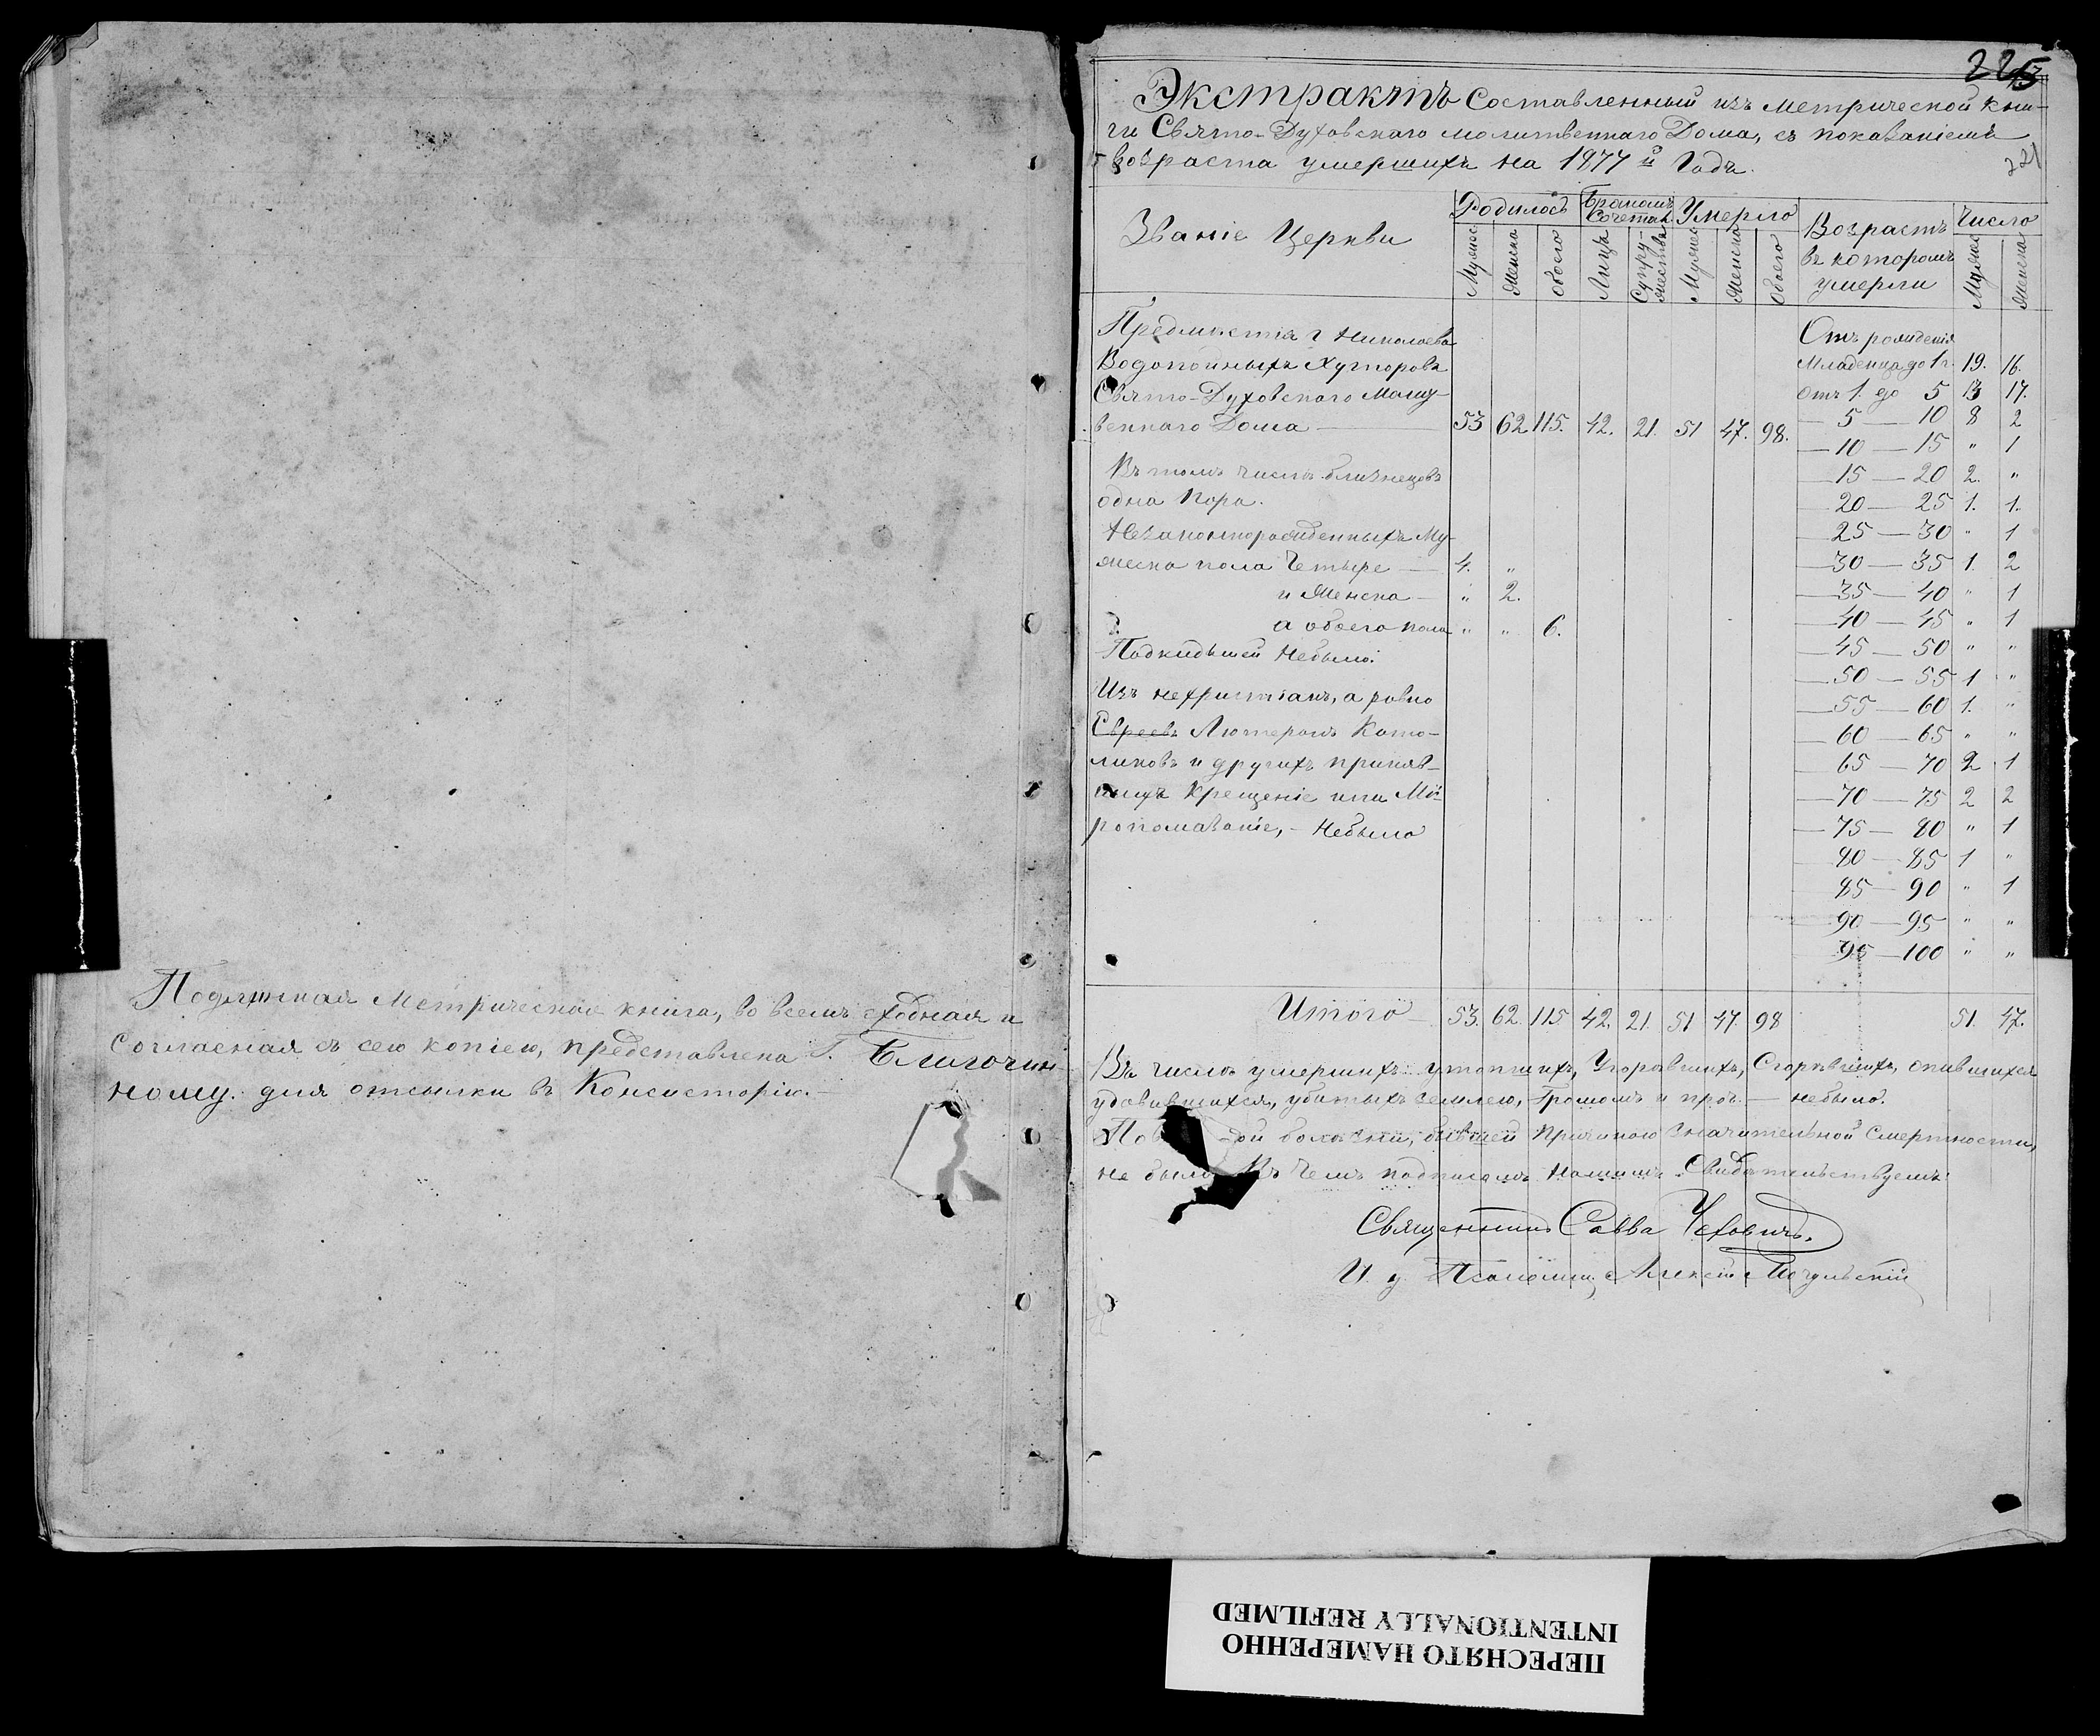 Подлинная Метрическая книга, во всемъ сходная и
согласная съ сею копіею, представлена Г. Благочин
ному для отсылки въ Консисторію.
225
Экстрактъ Составленный изъ метрической кни-
ги Свято-Духовскаго молитвеннаго Дома, съ показаніемъ
возраста умершихъ на 1877й Годъ.
221
Званіе Церкви
Родилось
Бракомъ Сочетал.
Умерло
Возрастъ въ которомъ умерли
Число
Мужес Женска Обоего Лицъ Супружествъ Мужес Женска Обоего Мужес Женска
Предмѣстія г Николаева
Водопойныхъ Хуторовъ
Свято-Духовскаго Молит-
веннаго Дома — 53 62 115. 42. 21. 51 47. 98.
Въ томъ числѣ близнецовъ
одна пара.
Незаконнорожденныхъ Му-
жеска пола Четыре — 4. "
и Женска — " 2.
а обоего пола " " 6.
Подкидышей Небыло.
Изъ нехристіанъ, а равно
Евреевъ Лютеранъ Като-
ликовъ и другихъ приняв-
шихъ Крещеніе или Мѵ-
ропомазаніе, - Небыло
Отъ рожденія
Младенца до 1 г. 19. 16.
Отъ 1. до 5 13 17.
— 5 — 10 8 2
— 10 — 15 " 1
— 15 — 20 2. "
— 20 — 25 1. 1.
— 25 — 30 " 1
— 30 — 35 1. 2
— 35 — 40 " 1
— 40 — 45 " 1
— 45 — 50 " "
— 50 — 55 1 "
— 55 — 60 1. "
— 60 — 65 " "
— 65 — 70 2 1
— 70 — 75 2 2
— 75 — 80 " 1
— 80 — 85 1 "
— 85 — 90 " 1
— 90 — 95 " "
— 95 — 100 " "
Итого — 53. 62. 115 42. 21. 51 47. 98 51. 47.
Въ числѣ умершихъ утопшихъ, Угорѣвшихъ, Сгорѣвшихъ, опившихся
удавившихся, убитыхъ землею, Громомъ и проч. — небыло.
болѣзни, бывшей причиною значительной Смертности,
не было Въ чемъ подписомъ нашимъ Свидѣтельствуемъ:
Священникъ Савва Чеховичъ.
И. д Псаломщ. Алексѣй Могульскій
ПЕРЕСНЯТО НАМЕРЕННО
INTENTIONALLY REFILMED